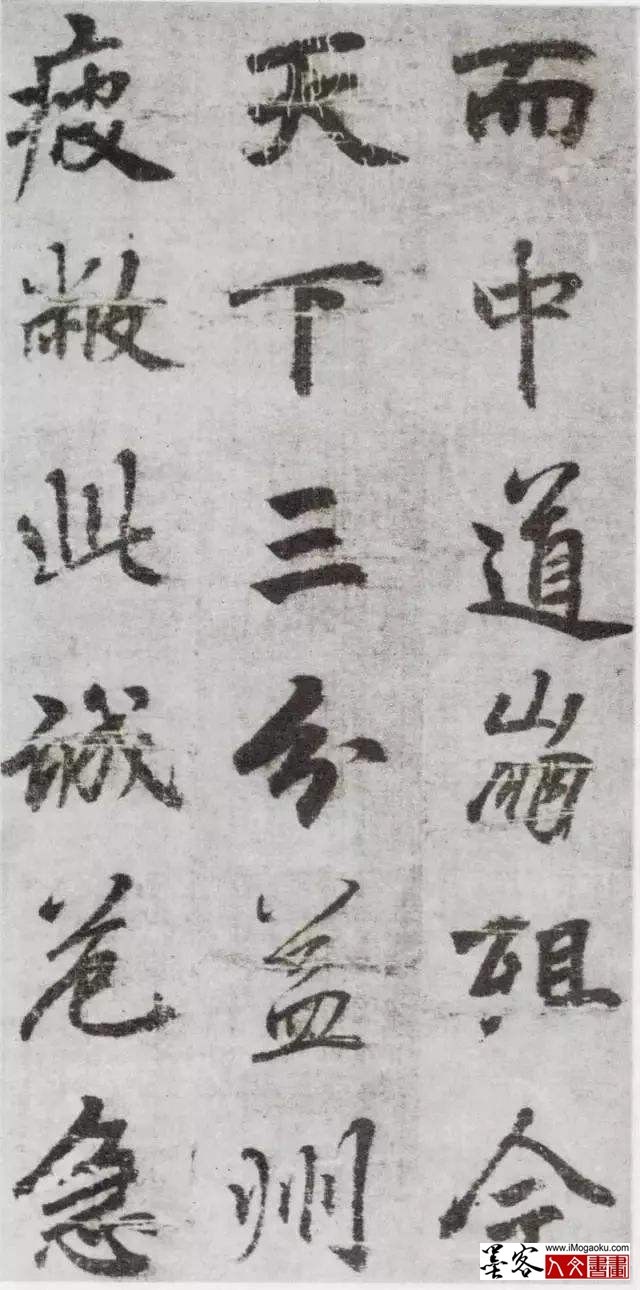 而中道崩殂今
天下三分益州
疲敝此诚危急
www.iMogaoku.com
墨客
人文書畫